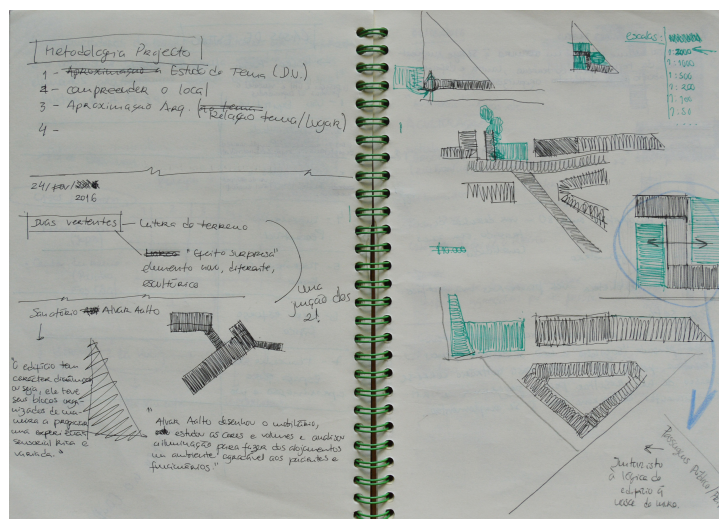 Metodologia Projecto
1 - Aproximação a Estudo do Tema (D.U.)
2 - compreender o local
3 - Aproximação Arq. (ao tema
Relação tema/Lugar)
4 -
24/fev/
2016
Duas vertentes - Leitura do terreno
"Efeito surpresa"
elemento novo, diferente,
escultórico
uma
junção das
2!
Sanatório Alvar Aalto
"O edifício tem
carácter dinâmico
ou seja, ele teve
seus blocos orga-
nizados de ma-
neira a propiciar
uma experiência
sensorial rica e
variada."
"Alvar Aalto desenhou o mobiliário,
estudou as cores e volumes e analisou
a iluminação para fazer dos alojamentos
um ambiente agradável aos pacientes e
funcionários."
escalas:
1:2000
1:1000
1:500
1:200
1:100
1:50
Juntar isto
a lógica do
edifício à
Passagem Pública